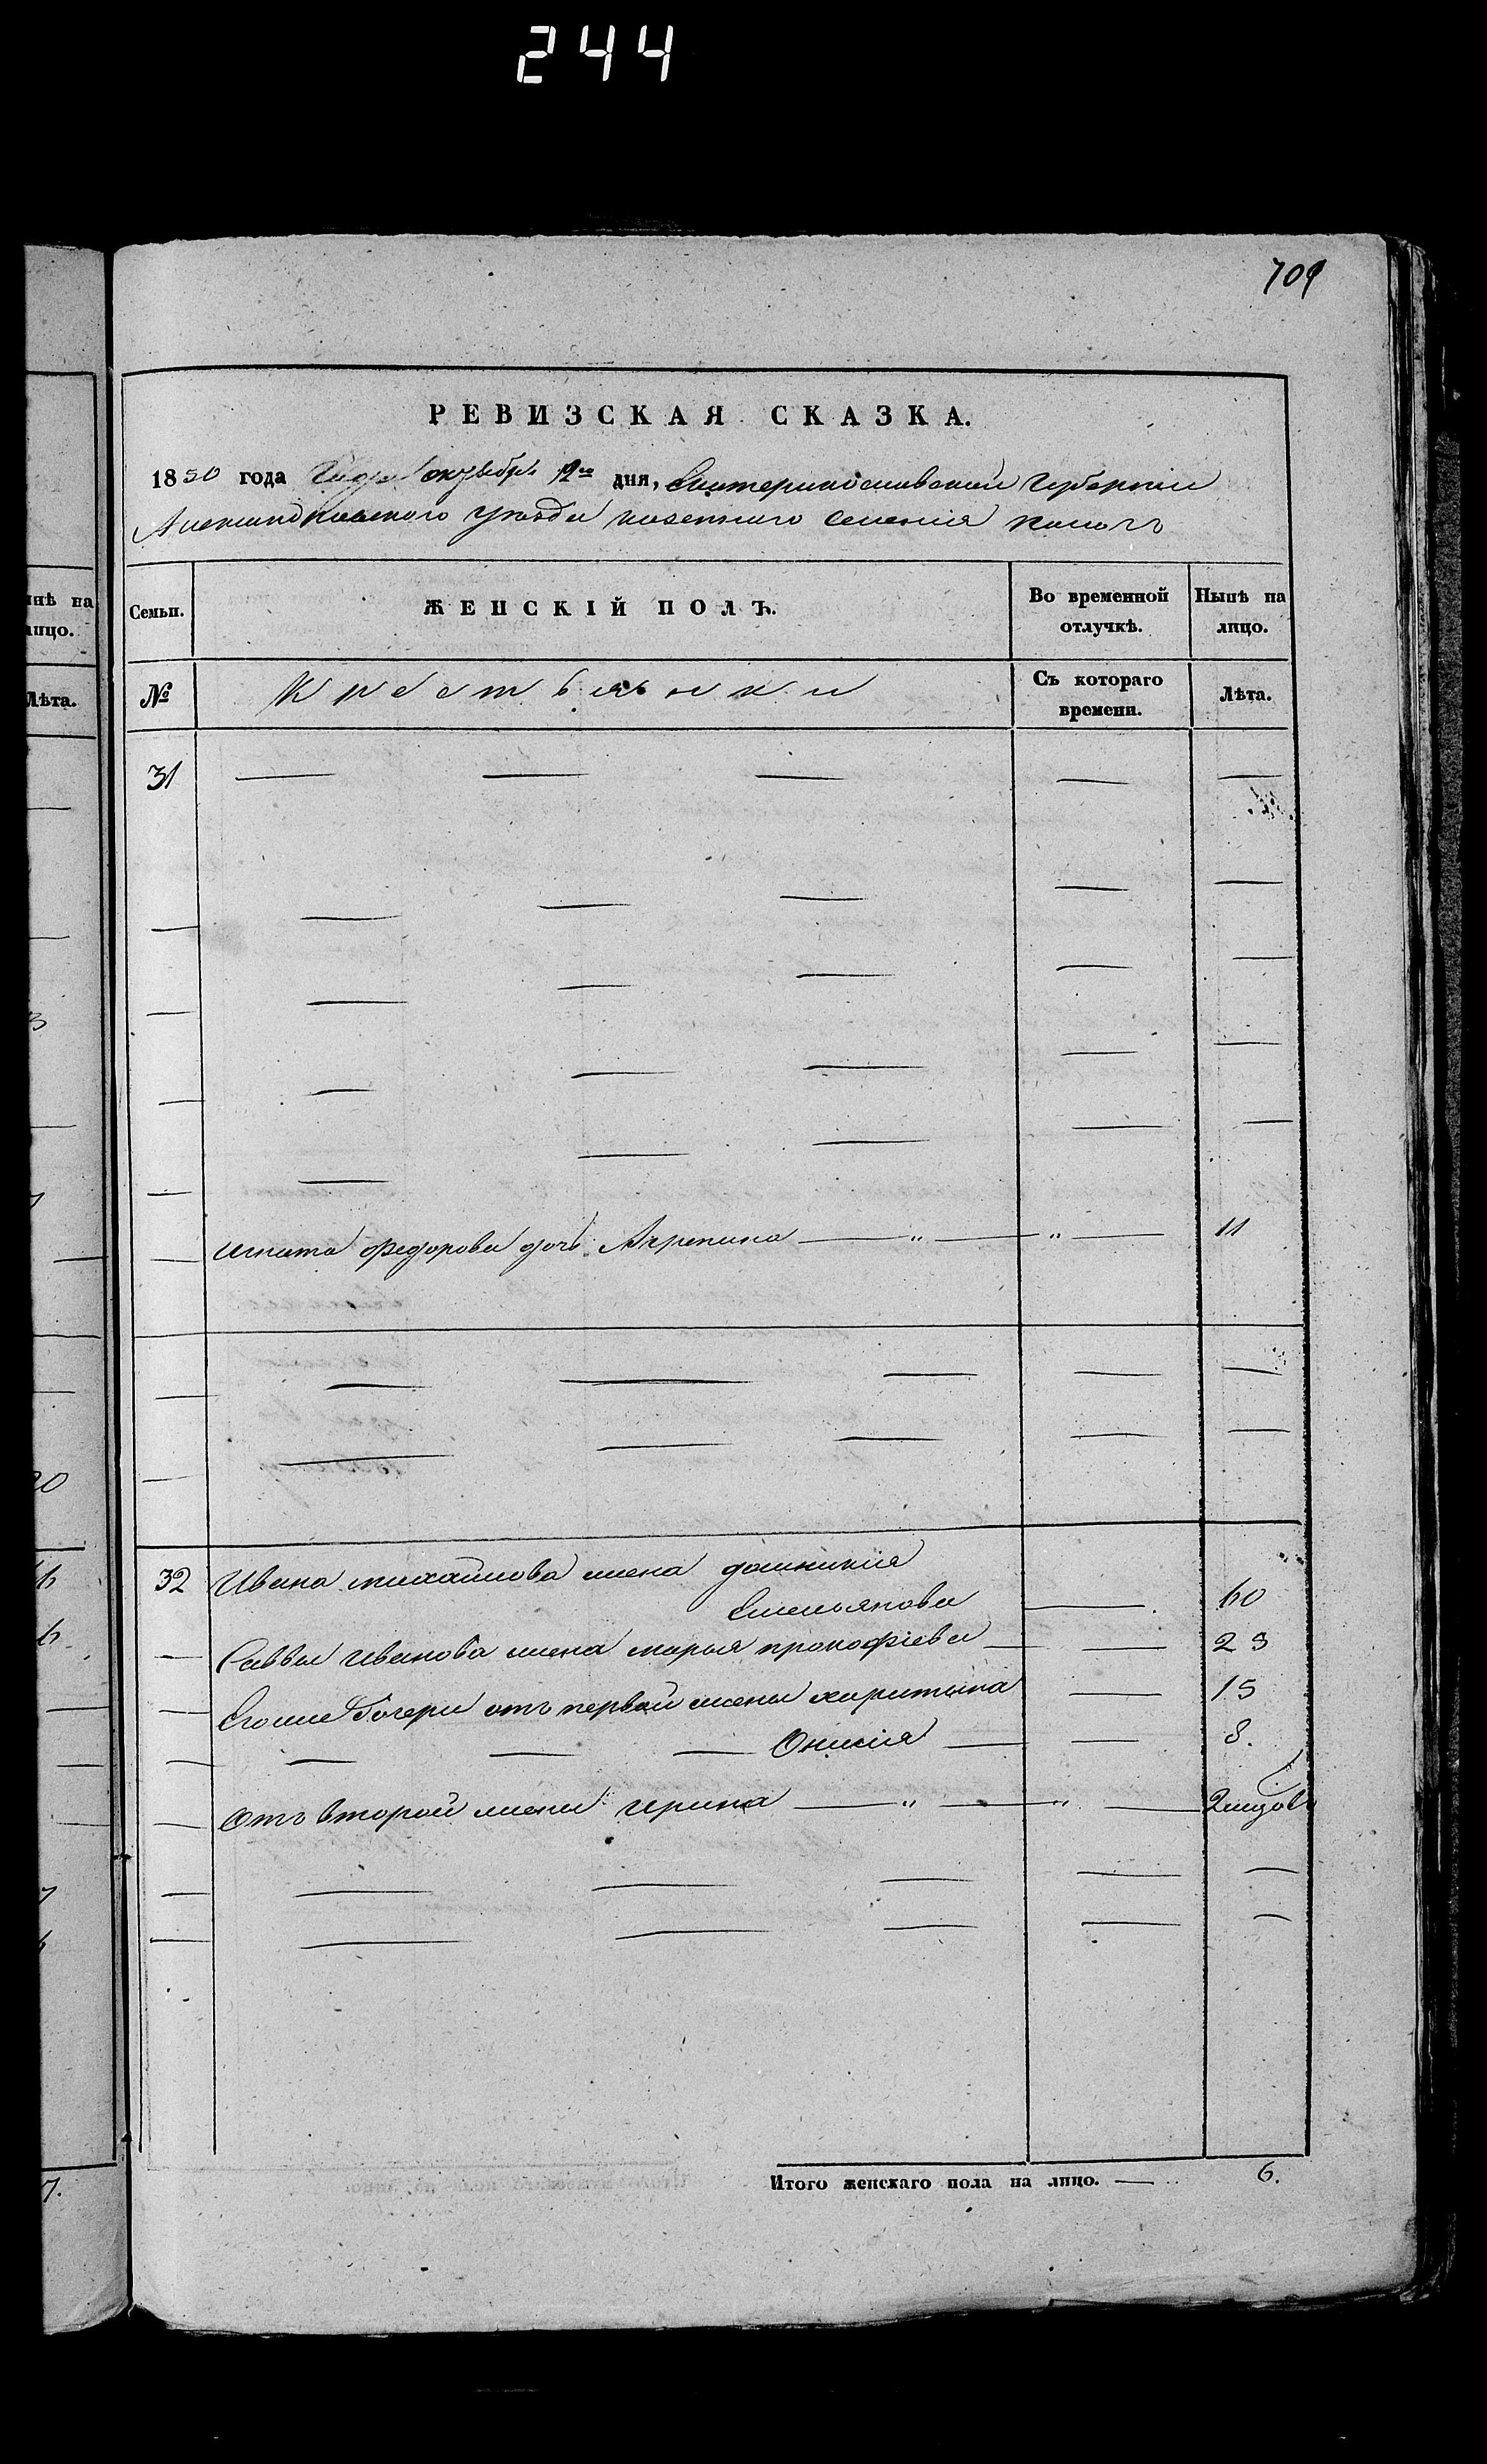 244
709
РЕВИЗСКАЯ СКАЗКА.
1850 года октября 12го дня, Екатеринославской губернии
Александровского уезда казенного селения
Семьи. ЖЕНСКІЙ ПОЛЪ. Во временной отлучкѣ. Нынѣ на лицо.
№ Крестьянки Съ котораго времени. Лѣта.
нѣ на
лицо.
Лѣта.
31 — — — — —
— — — — — —
— — — — — —
— — — — — —
— — — — — —
— Игната Федорова дочь Акрепина — " — " — 11
— — — — — —
— — — — — —
32 Ивана михайлова жена домникия
Емельянова — 60
— Саввы иванова жена марья прокофіева — — 23
— Егоже дочери отъ первой жены харитына — 15
— — — — Онисия — — 8.
— Отъ второй жены ирина — " — " — 2 мцов
— — — — — —
— — — — — —
Итого женскаго пола на лицо. — 6.
7.